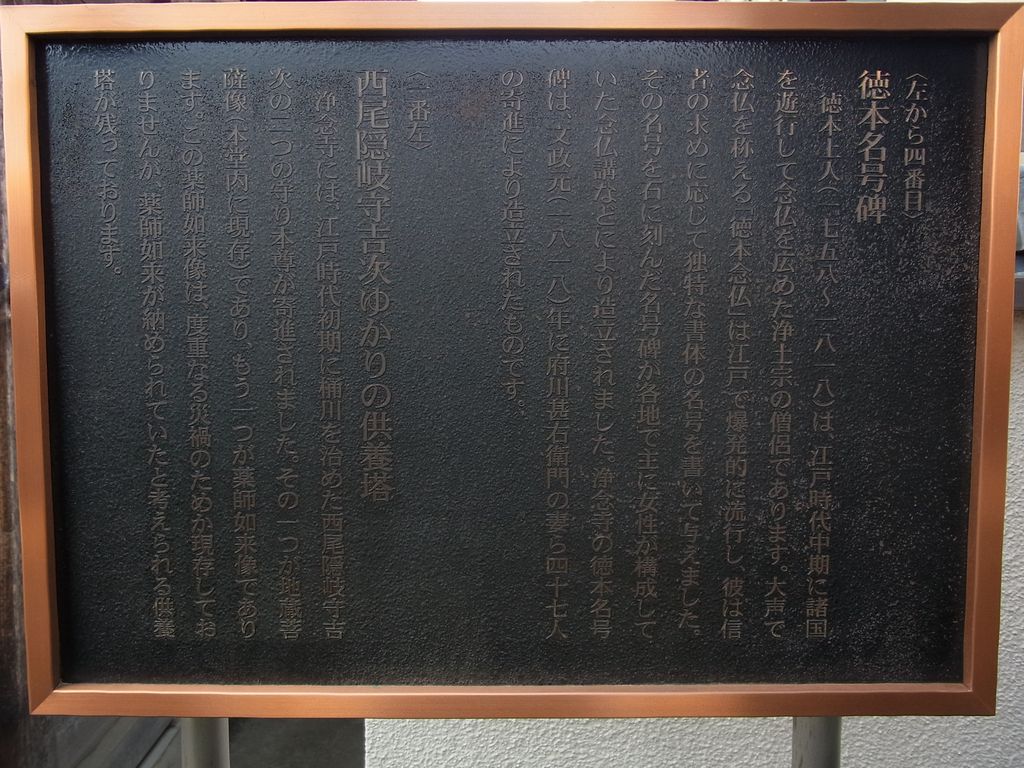 (左から四番目)
徳本名号碑
徳本上人(一七五八〜一八一八)は、江戸時代中期に諸国
を遊行して念仏を広めた浄土宗の僧侶であります。大声で
念仏を称える「徳本念仏」は江戸で爆発的に流行し、彼は信
者の求めに応じて独特な書体の名号を書いて与えました。
その名号を石に刻んだ名号碑が各地で主に女性が構成して
いた念仏講などにより造立されました。浄念寺の徳本名号
碑は、文政元(一八一八)年に府川甚右衛門の妻ら四十七人
の寄進により造立されたものです。
(一番左)
西尾隠岐守吉次ゆかりの供養塔
浄念寺には、江戸時代初期に桶川を治めた西尾隠岐守吉
次の二つの守り本尊が寄進されました。その一つが地蔵菩
薩像(本堂内に現存)であり、もう一つが薬師如来像であり
ます。この薬師如来像は、度重なる災禍のためか現存してお
りませんが、薬師如来が納められていたと考えられる供養
塔が残っております。